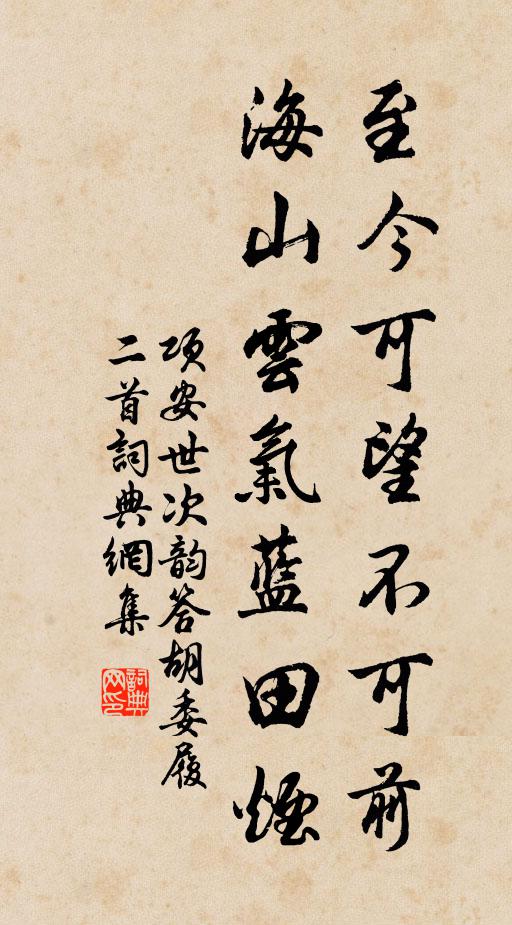 至今可望不可前
海山雲氣藍田煙
项安世次韵答胡委履
二首詞典網集
詞典网印